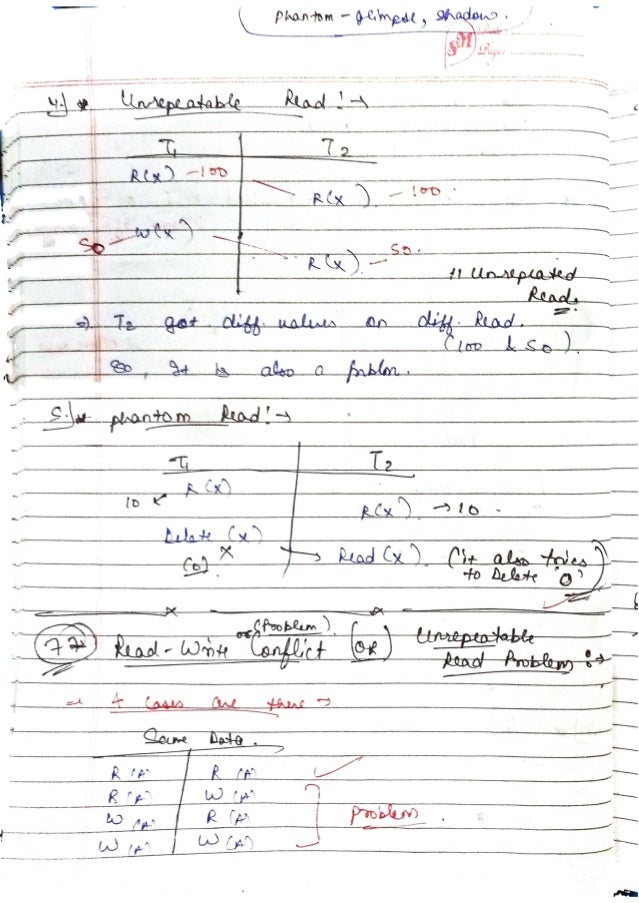 Phantom - glimpse, shadow.
SM
4.) * Unrepeatable Read! →
T1 T2
R(X) - 100
R(X) - 100.
50 - W(X)
R(X) - 50.
!! Unrepeated
Read.
⇒ T2 got diff. values on diff. Read.
(100 & 50).
So, It is also a problm.
5.) * phantom Read! →
T1 T2
10 ← R(X)
R(X) → 10.
Delete (X)
(0) X → Read (X). (it also tries
to Delete '0')
77 Read-Write or (Problem) Conflict (OR) Unrepeatable
Read Problem :→
⇒ 4 Cases are there →
Same Data.
R(A) R(A) ✓
R(A) W(A)
W(A) R(A) Problem.
W(A) W(A)